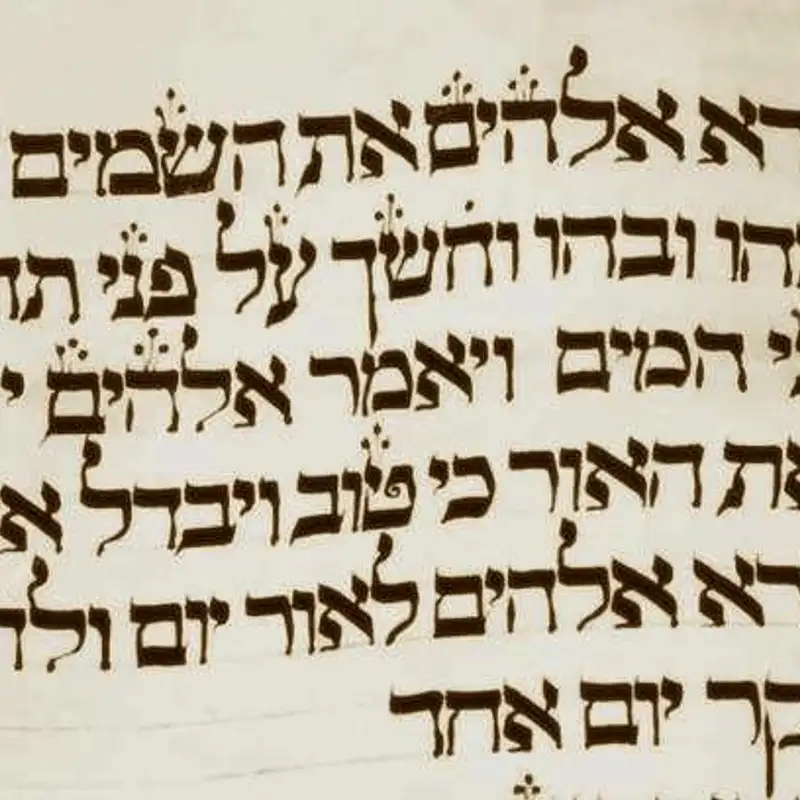 רא אלהים את השמים
הו ובהו וחשך על פני תה
י המים ויאמר אלהים י
את האור כי טוב ויבדל א
רא אלהים לאור יום ול
קר יום אחד